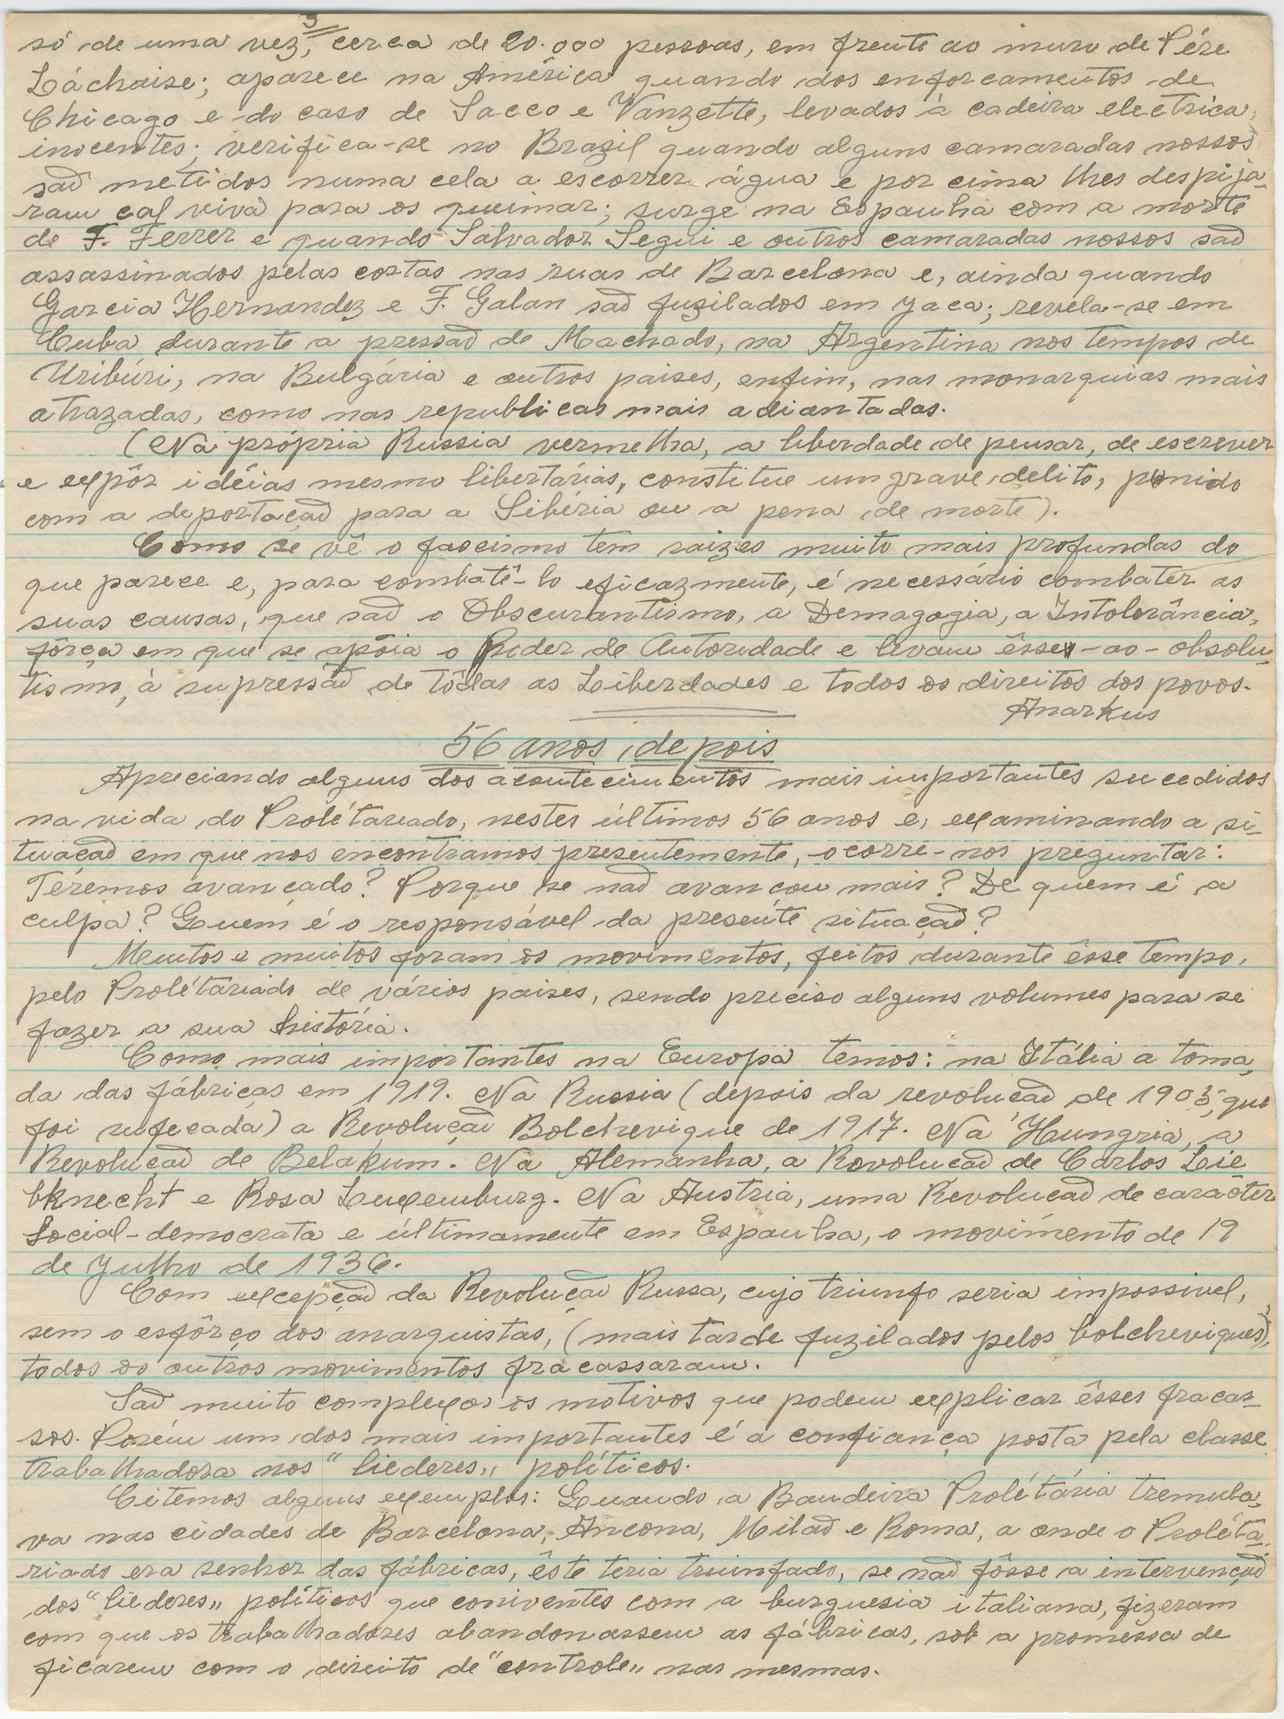 3
só de uma vez, cerca de 20.000 pessoas, em frente ao muro de Pére
Láchaise; aparece na América quando dos enforcamentos de
Chicago e do caso de Sacco e Vanzette, levados à cadeira electrica,
inocentes; verifica-se no Brazil quando alguns camaradas nossos
saõ metidos numa cela a escorrer água e por cima lhes despija-
ram cal viva para os queimar; surge na Espanha com a morte
de F. Ferrer e quando Salvador Segui e outros camaradas nossos saõ
assassinados pelas costas nas ruas de Barcelona e, ainda quando
Garcia Hernandez e F. Galan saõ fuzilados em Jaca; revela-se em
Cuba durante a pressaõ de Machado, na Argentina nos tempos de
Uribúri, na Bulgária e outros paises, enfim, nas monarquias mais
atrazadas, como nas republicas mais adiantadas.
(Na própria Russia vermelha, a liberdade de pensar, de escrever
e expôr idéias mesmo libertárias, constitue um grave delito, punido
com a deportaçaõ para a Sibéria ou a pena de morte).
Como se vê o fascismo tem raizes muito mais profundas do
que parece e, para combatê-lo eficazmente, é necessário combater as
suas causas, que saõ o Obscurantismo, a Demagogia, a Intolerância,
fôrça em que se apóia o Poder de Autoridade e levam êsse-ao-absolu-
tismo, à supressaõ de tôdas as Liberdades e todos os direitos dos povos.
Anarkus
56 anos depois
Apreciando alguns dos acontecimentos mais importantes sucedidos
na vida do Prolétariado, nestes últimos 56 anos e, examinando a si-
tuaçaõ em que nos encontramos presentemente, ocorre-nos preguntar:
Téremos avançado? Porque se naõ avançou mais? De quem é a
culpa? Quem é o responsável da presente situaçaõ?
Muitos e muitos foram os movimentos, feitos durante êsse tempo,
pelo Prolétariado de vários paises, sendo preciso alguns volumes para se
fazer a sua história.
Como mais importantes na Europa temos: na Itália a toma-
da das fábricas em 1919. Na Russia (depois da revoluçaõ de 1905, que
foi sufocada) a Revoluçaõ Bolchevique de 1917. Na Hungria, a
Revoluçaõ de Belakum. Na Alemanha, a Rovoluçaõ de Carlos Lie-
bknecht e Rosa Luxemburg. Na Austria, uma Revoluçaõ de carácter
Social-democrata e últimamente em Espanha, o movimento de 19
de Julho de 1936.
Com excepçaõ da Revoluçaõ Russa, cujo triunfo seria impossivel,
sem o esfôrço dos anarquistas, (mais tarde fuzilados pelos bolcheviques),
todos os outros movimentos fracassaram.
Saõ muito complexos os motivos que podem explicar êsses fracas-
sos. Porém um dos mais importantes é a confiança posta pela classe
trabalhadora nos "liederes" políticos.
Citemos alguns exemplos: Quando a Bandeira Prolétária tremula-
va nas cidades de Barcelona, Ancona, Milaõ e Roma, a onde o Proléta-
riado era senhor das fábricas, êste teria triunfado, se naõ fôsse a intervençaõ
dos "liederes" políticos que coniventes com a burguesia italiana, fizeram
com que os trabalhadores abandonassem as fábricas, sob a promessa de
ficarem com o direito de "controle" nas mesmas.